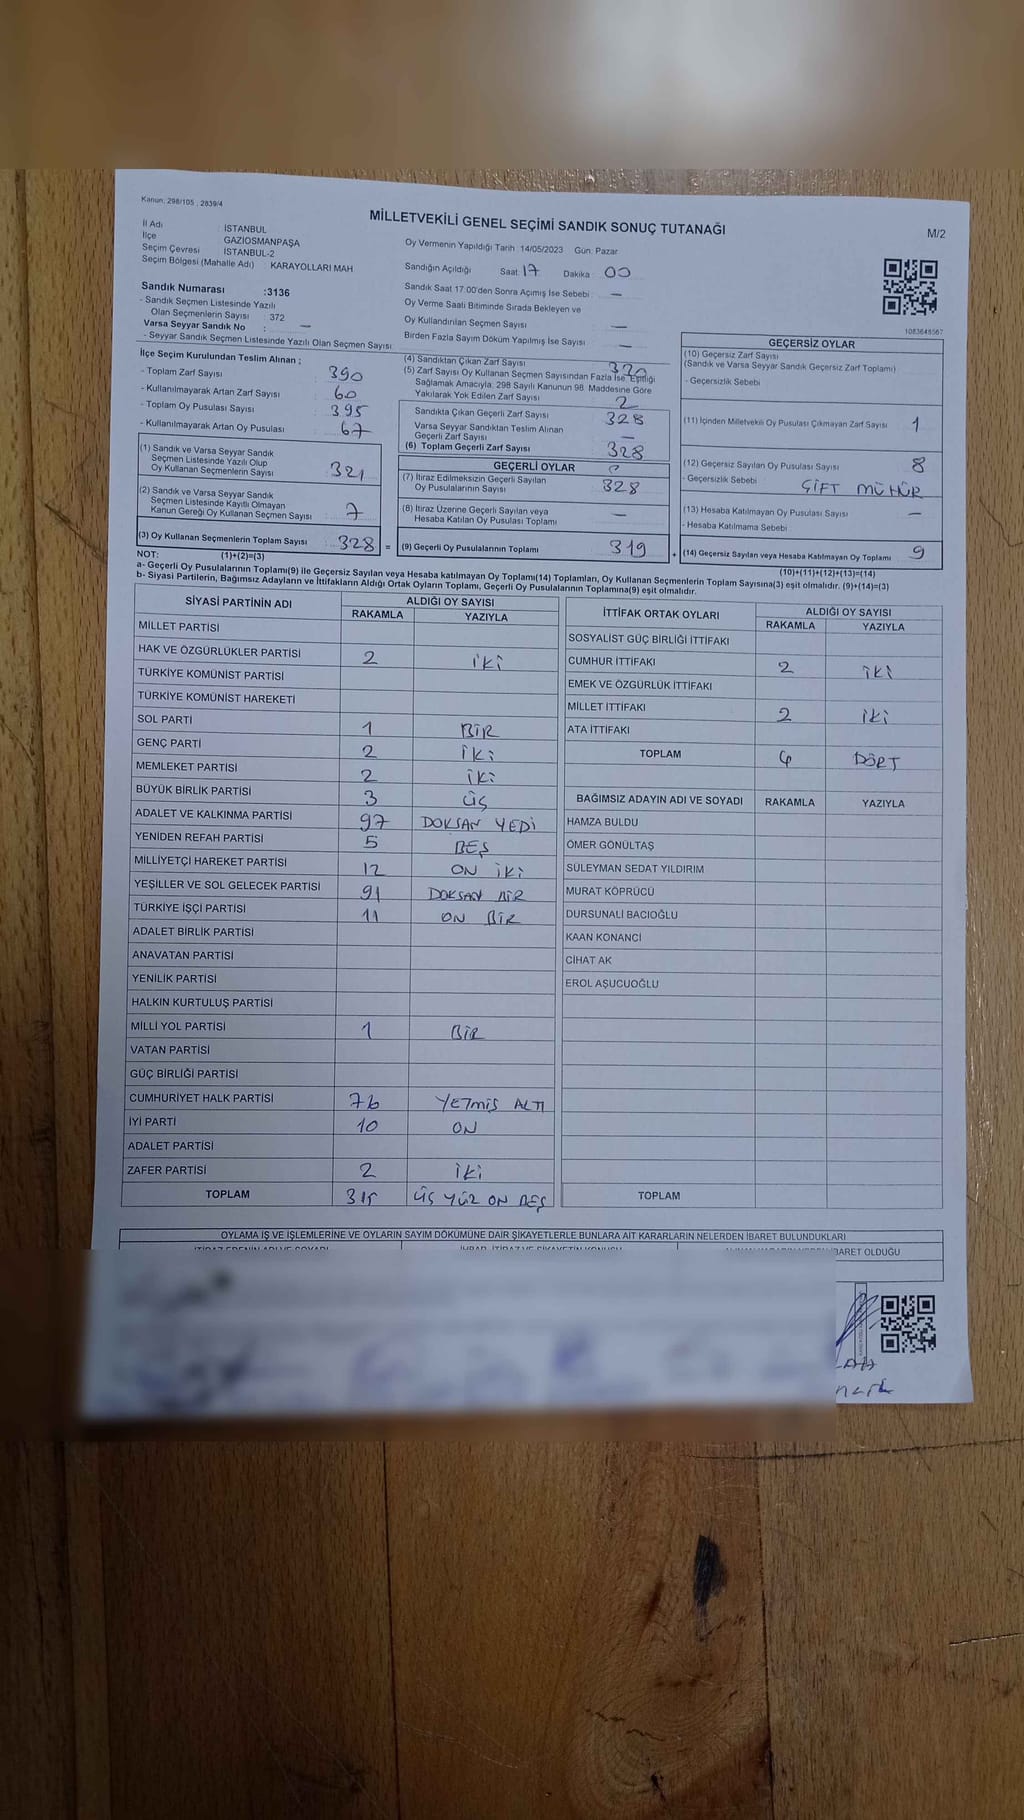 Kanun: 298/105 , 2839/4
MİLLETVEKİLİ GENEL SEÇİMİ SANDIK SONUÇ TUTANAĞI
M/2
İl Adı : İSTANBUL
İlçe GAZİOSMANPAŞA
Seçim Çevresi İSTANBUL-2
Seçim Bölgesi (Mahalle Adı) : KARAYOLLARI MAH
Oy Vermenin Yapıldığı Tarih: 14/05/2023 Gün: Pazar
Sandığın Açıldığı Saat: 17 Dakika : 00
Sandık Saat 17:00'den Sonra Açımış İse Sebebi : —
Oy Verme Saati Bitiminde Sırada Bekleyen ve
Oy Kullandırılan Seçmen Sayısı : —
Birden Fazla Sayım Döküm Yapılmış İse Sayısı : —
1083648567
Sandık Numarası :3136
- Sandık Seçmen Listesinde Yazılı
Olan Seçmenlerin Sayısı : 372
Varsa Seyyar Sandık No : —
- Seyyar Sandık Seçmen Listesinde Yazılı Olan Seçmen Sayısı :
İlçe Seçim Kurulundan Teslim Alınan ;
- Toplam Zarf Sayısı : 390
- Kullanılmayarak Artan Zarf Sayısı : 60
- Toplam Oy Pusulası Sayısı : 395
- Kullanılmayarak Artan Oy Pusulası : 67
(1) Sandık ve Varsa Seyyar Sandık
Seçmen Listesinde Yazılı Olup
Oy Kullanan Seçmenlerin Sayısı : 321
(2) Sandık ve Varsa Seyyar Sandık
Seçmen Listesinde Kayıtlı Olmayan
Kanun Gereği Oy Kullanan Seçmen Sayısı : 7
(3) Oy Kullanan Seçmenlerin Toplam Sayısı : 328 =
(1)+(2)=(3)
(4) Sandıktan Çıkan Zarf Sayısı : 330
(5) Zarf Sayısı Oy Kullanan Seçmen Sayısından Fazla İse, Eşitliği
Sağlamak Amacıyla, 298 Sayılı Kanunun 98. Maddesine Göre
Yakılarak Yok Edilen Zarf Sayısı : 2
Sandıkta Çıkan Geçerli Zarf Sayısı : 328
Varsa Seyyar Sandıktan Teslim Alınan
Geçerli Zarf Sayısı : —
(6) Toplam Geçerli Zarf Sayısı : 328
GEÇERLİ OYLAR
(7) İtiraz Edilmeksizin Geçerli Sayılan
Oy Pusulalarının Sayısı : 328
(8) İtiraz Üzerine Geçerli Sayılan veya
Hesaba Katılan Oy Pusulası Toplamı : —
(9) Geçerli Oy Pusulalarının Toplamı : 319 +
GEÇERSİZ OYLAR
(10) Geçersiz Zarf Sayısı
(Sandık ve Varsa Seyyar Sandık Geçersiz Zarf Toplamı)
- Geçersizlik Sebebi :
(11) İçinden Milletvekili Oy Pusulası Çıkmayan Zarf Sayısı : 1
(12) Geçersiz Sayılan Oy Pusulası Sayısı : 8
- Geçersizlik Sebebi : ÇİFT MÜHÜR
(13) Hesaba Katılmayan Oy Pusulası Sayısı : —
- Hesaba Katılmama Sebebi :
(14) Geçersiz Sayılan veya Hesaba Katılmayan Oy Toplamı : 9
(10)+(11)+(12)+(13)=(14)
NOT:
a- Geçerli Oy Pusulalarının Toplamı(9) ile Geçersiz Sayılan veya Hesaba katılmayan Oy Toplamı(14) Toplamları, Oy Kullanan Seçmenlerin Toplam Sayısına(3) eşit olmalıdır. (9)+(14)=(3)
b- Siyasi Partilerin, Bağımsız Adayların ve İttifakların Aldığı Ortak Oyların Toplamı, Geçerli Oy Pusulalarının Toplamına(9) eşit olmalıdır.
SİYASİ PARTİNİN ADI ALDIĞI OY SAYISI
RAKAMLA YAZIYLA
MİLLET PARTİSİ
HAK VE ÖZGÜRLÜKLER PARTİSİ 2 İKİ
TÜRKİYE KOMÜNİST PARTİSİ
TÜRKİYE KOMÜNİST HAREKETİ
SOL PARTİ 1 BİR
GENÇ PARTİ 2 İKİ
MEMLEKET PARTİSİ 2 İKİ
BÜYÜK BİRLİK PARTİSİ 3 ÜÇ
ADALET VE KALKINMA PARTİSİ 97 DOKSAN YEDİ
YENİDEN REFAH PARTİSİ 5 BEŞ
MİLLİYETÇİ HAREKET PARTİSİ 12 ON İKİ
YEŞİLLER VE SOL GELECEK PARTİSİ 91 DOKSAN BİR
TÜRKİYE İŞÇİ PARTİSİ 11 ON BİR
ADALET BİRLİK PARTİSİ
ANAVATAN PARTİSİ
YENİLİK PARTİSİ
HALKIN KURTULUŞ PARTİSİ
MİLLİ YOL PARTİSİ 1 BİR
VATAN PARTİSİ
GÜÇ BİRLİĞİ PARTİSİ
CUMHURİYET HALK PARTİSİ 76 YETMİŞ ALTI
İYİ PARTİ 10 ON
ADALET PARTİSİ
ZAFER PARTİSİ 2 İKİ
TOPLAM 315 ÜÇ YÜZ ON BEŞ
İTTİFAK ORTAK OYLARI ALDIĞI OY SAYISI
RAKAMLA YAZIYLA
SOSYALİST GÜÇ BİRLİĞİ İTTİFAKI
CUMHUR İTTİFAKI 2 İKİ
EMEK VE ÖZGÜRLÜK İTTİFAKI
MİLLET İTTİFAKI 2 İKİ
ATA İTTİFAKI
TOPLAM 4 DÖRT
BAĞIMSIZ ADAYIN ADI VE SOYADI RAKAMLA YAZIYLA
HAMZA BULDU
ÖMER GÖNÜLTAŞ
SÜLEYMAN SEDAT YILDIRIM
MURAT KÖPRÜCÜ
DURSUNALİ BACIOĞLU
KAAN KONANCİ
CİHAT AK
EROL AŞUCUOĞLU
TOPLAM
OYLAMA İŞ VE İŞLEMLERİNE VE OYLARIN SAYIM DÖKÜMÜNE DAİR ŞİKAYETLERLE BUNLARA AİT KARARLARIN NELERDEN İBARET BULUNDUKLARI
BARET OLDUĞU